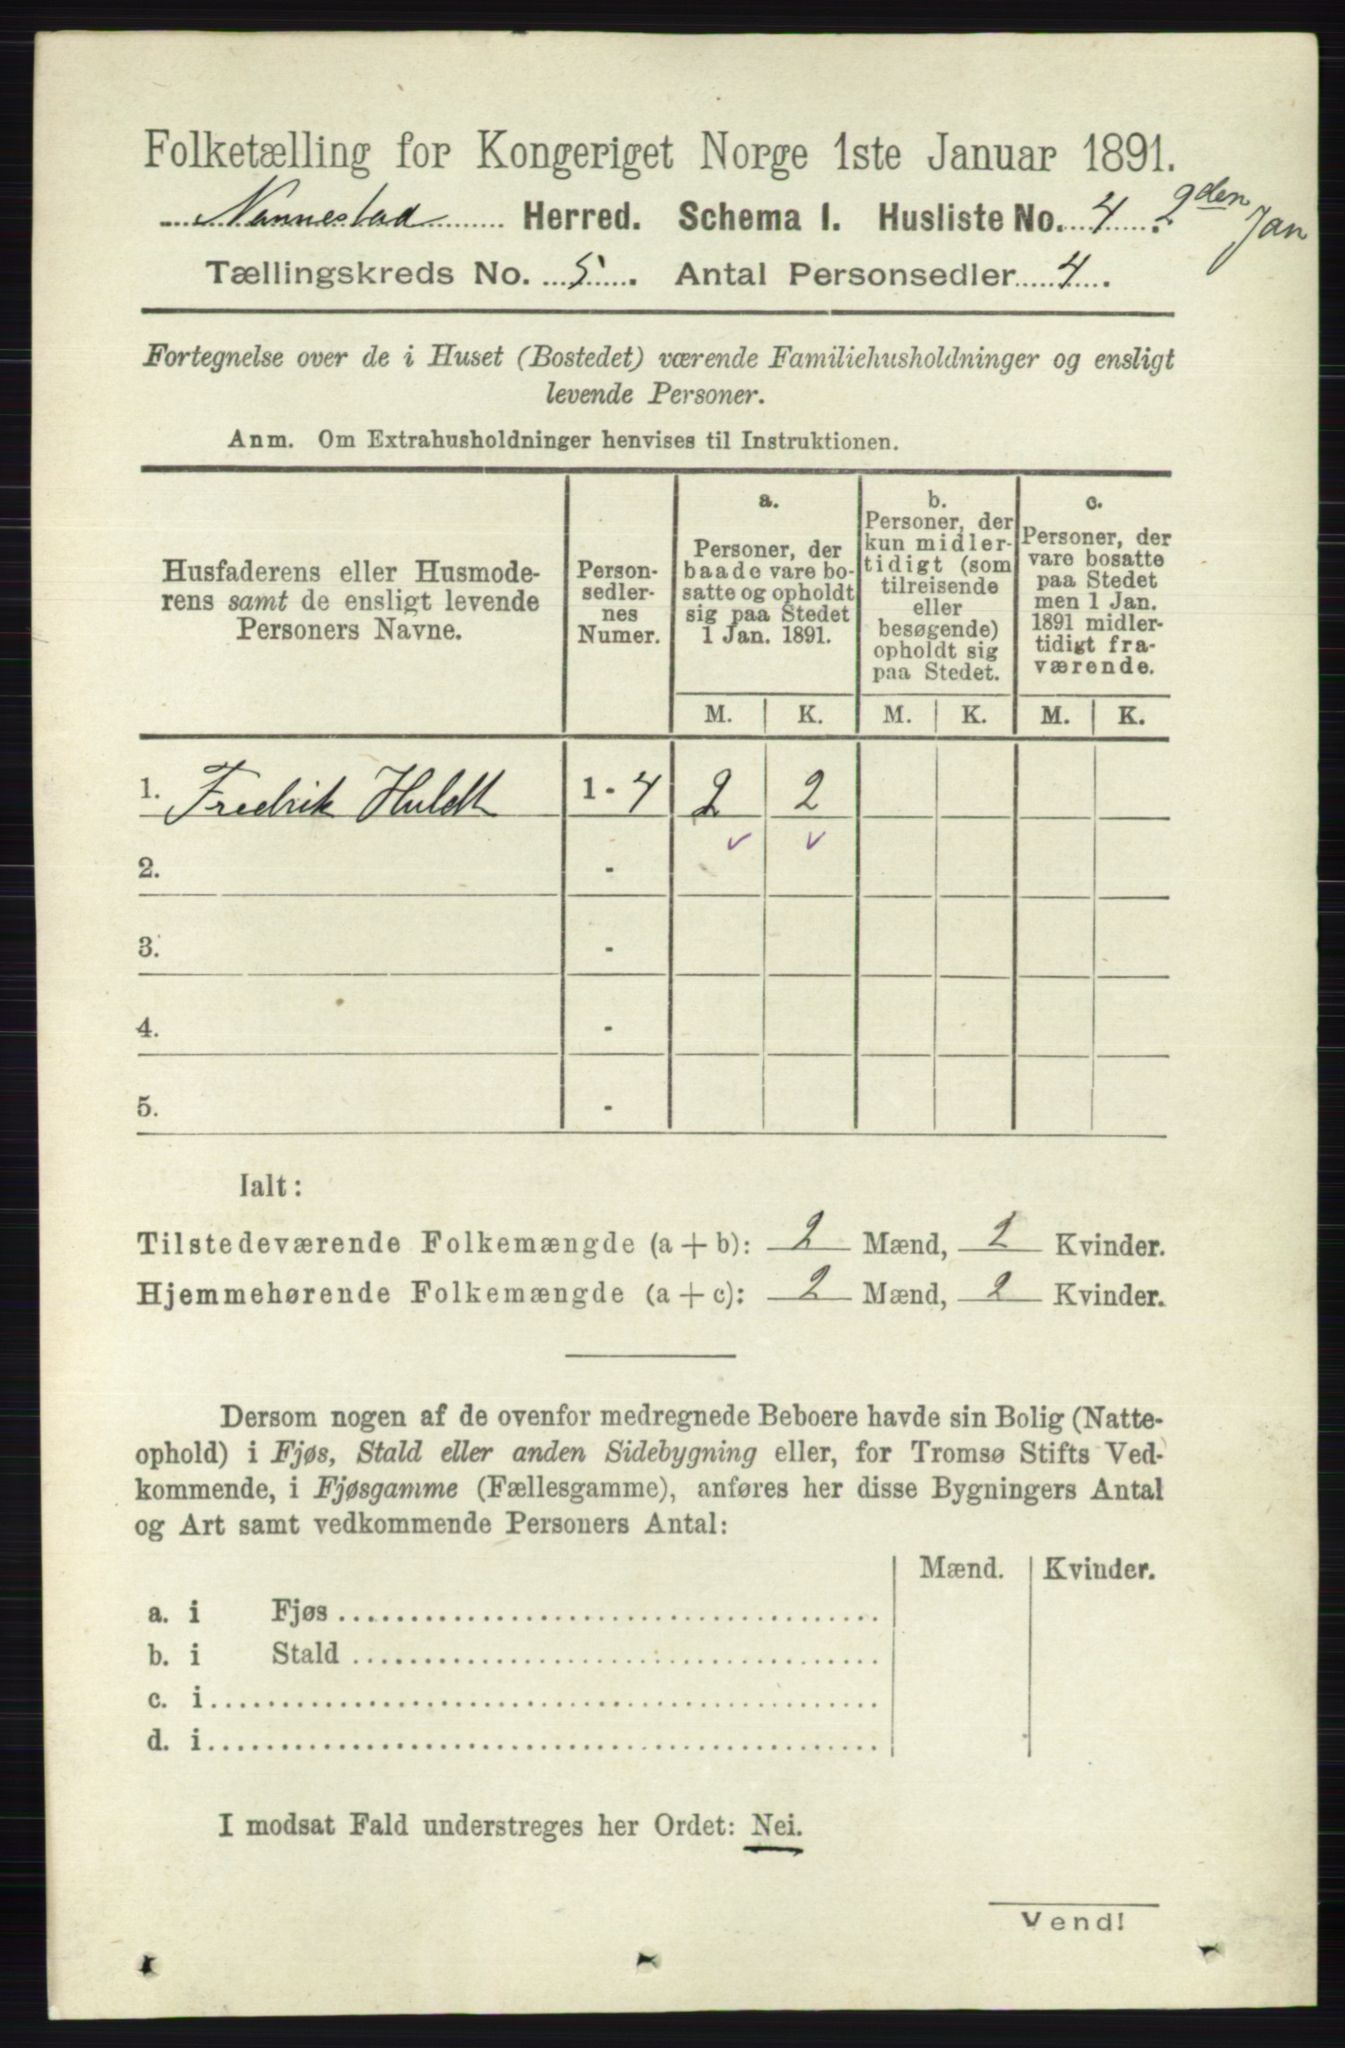 Folketælling for Kongeriget Norge 1ste Januar 1891.
Nannestad Herred. Schema I. Husliste No. 4. 2den Jan
Tællingskreds No. 5. Antal Personsedler 4.
Fortegnelse over de i Huset (Bostedet) værende Familiehusholdninger og ensligt
levende Personer.
Anm. Om Extrahusholdninger henvises til Instruktionen.
Husfaderens eller Husmode-
rens samt de ensligt levende
Personers Navne.
Person-
sedler-
nes
Numer.
a.
Personer, der
baade vare bo-
satte og opholdt
sig paa Stedet
1 Jan. 1891.
b.
Personer, der
kun midler-
tidigt (som
tilreisende
eller
besøgende)
opholdt sig
paa Stedet.
c.
Personer, der
vare bosatte
paa Stedet
men 1 Jan.
1891 midler-
tidigt fra-
værende.
M. K. M. K. M. K.
1. Fredrik Huldt 1 - 4 2 2
2. -
3. -
4. -
5. -
Ialt:
Tilstedeværende Folkemængde (a + b): 2 Mænd, 2 Kvinder.
Hjemmehørende Folkemængde (a + c): 2 Mænd, 2 Kvinder.
Dersom nogen af de ovenfor medregnede Beboere havde sin Bolig (Natte-
ophold) i Fjøs, Stald eller anden Sidebygning eller, for Tromsø Stifts Ved-
kommende, i Fjøsgamme (Fællesgamme), anføres her disse Bygningers Antal
og Art samt vedkommende Personers Antal:
Mænd. Kvinder.
a. i Fjøs
b. i Stald
c. i
d. i
I modsat Fald understreges her Ordet: Nei.
Vend!